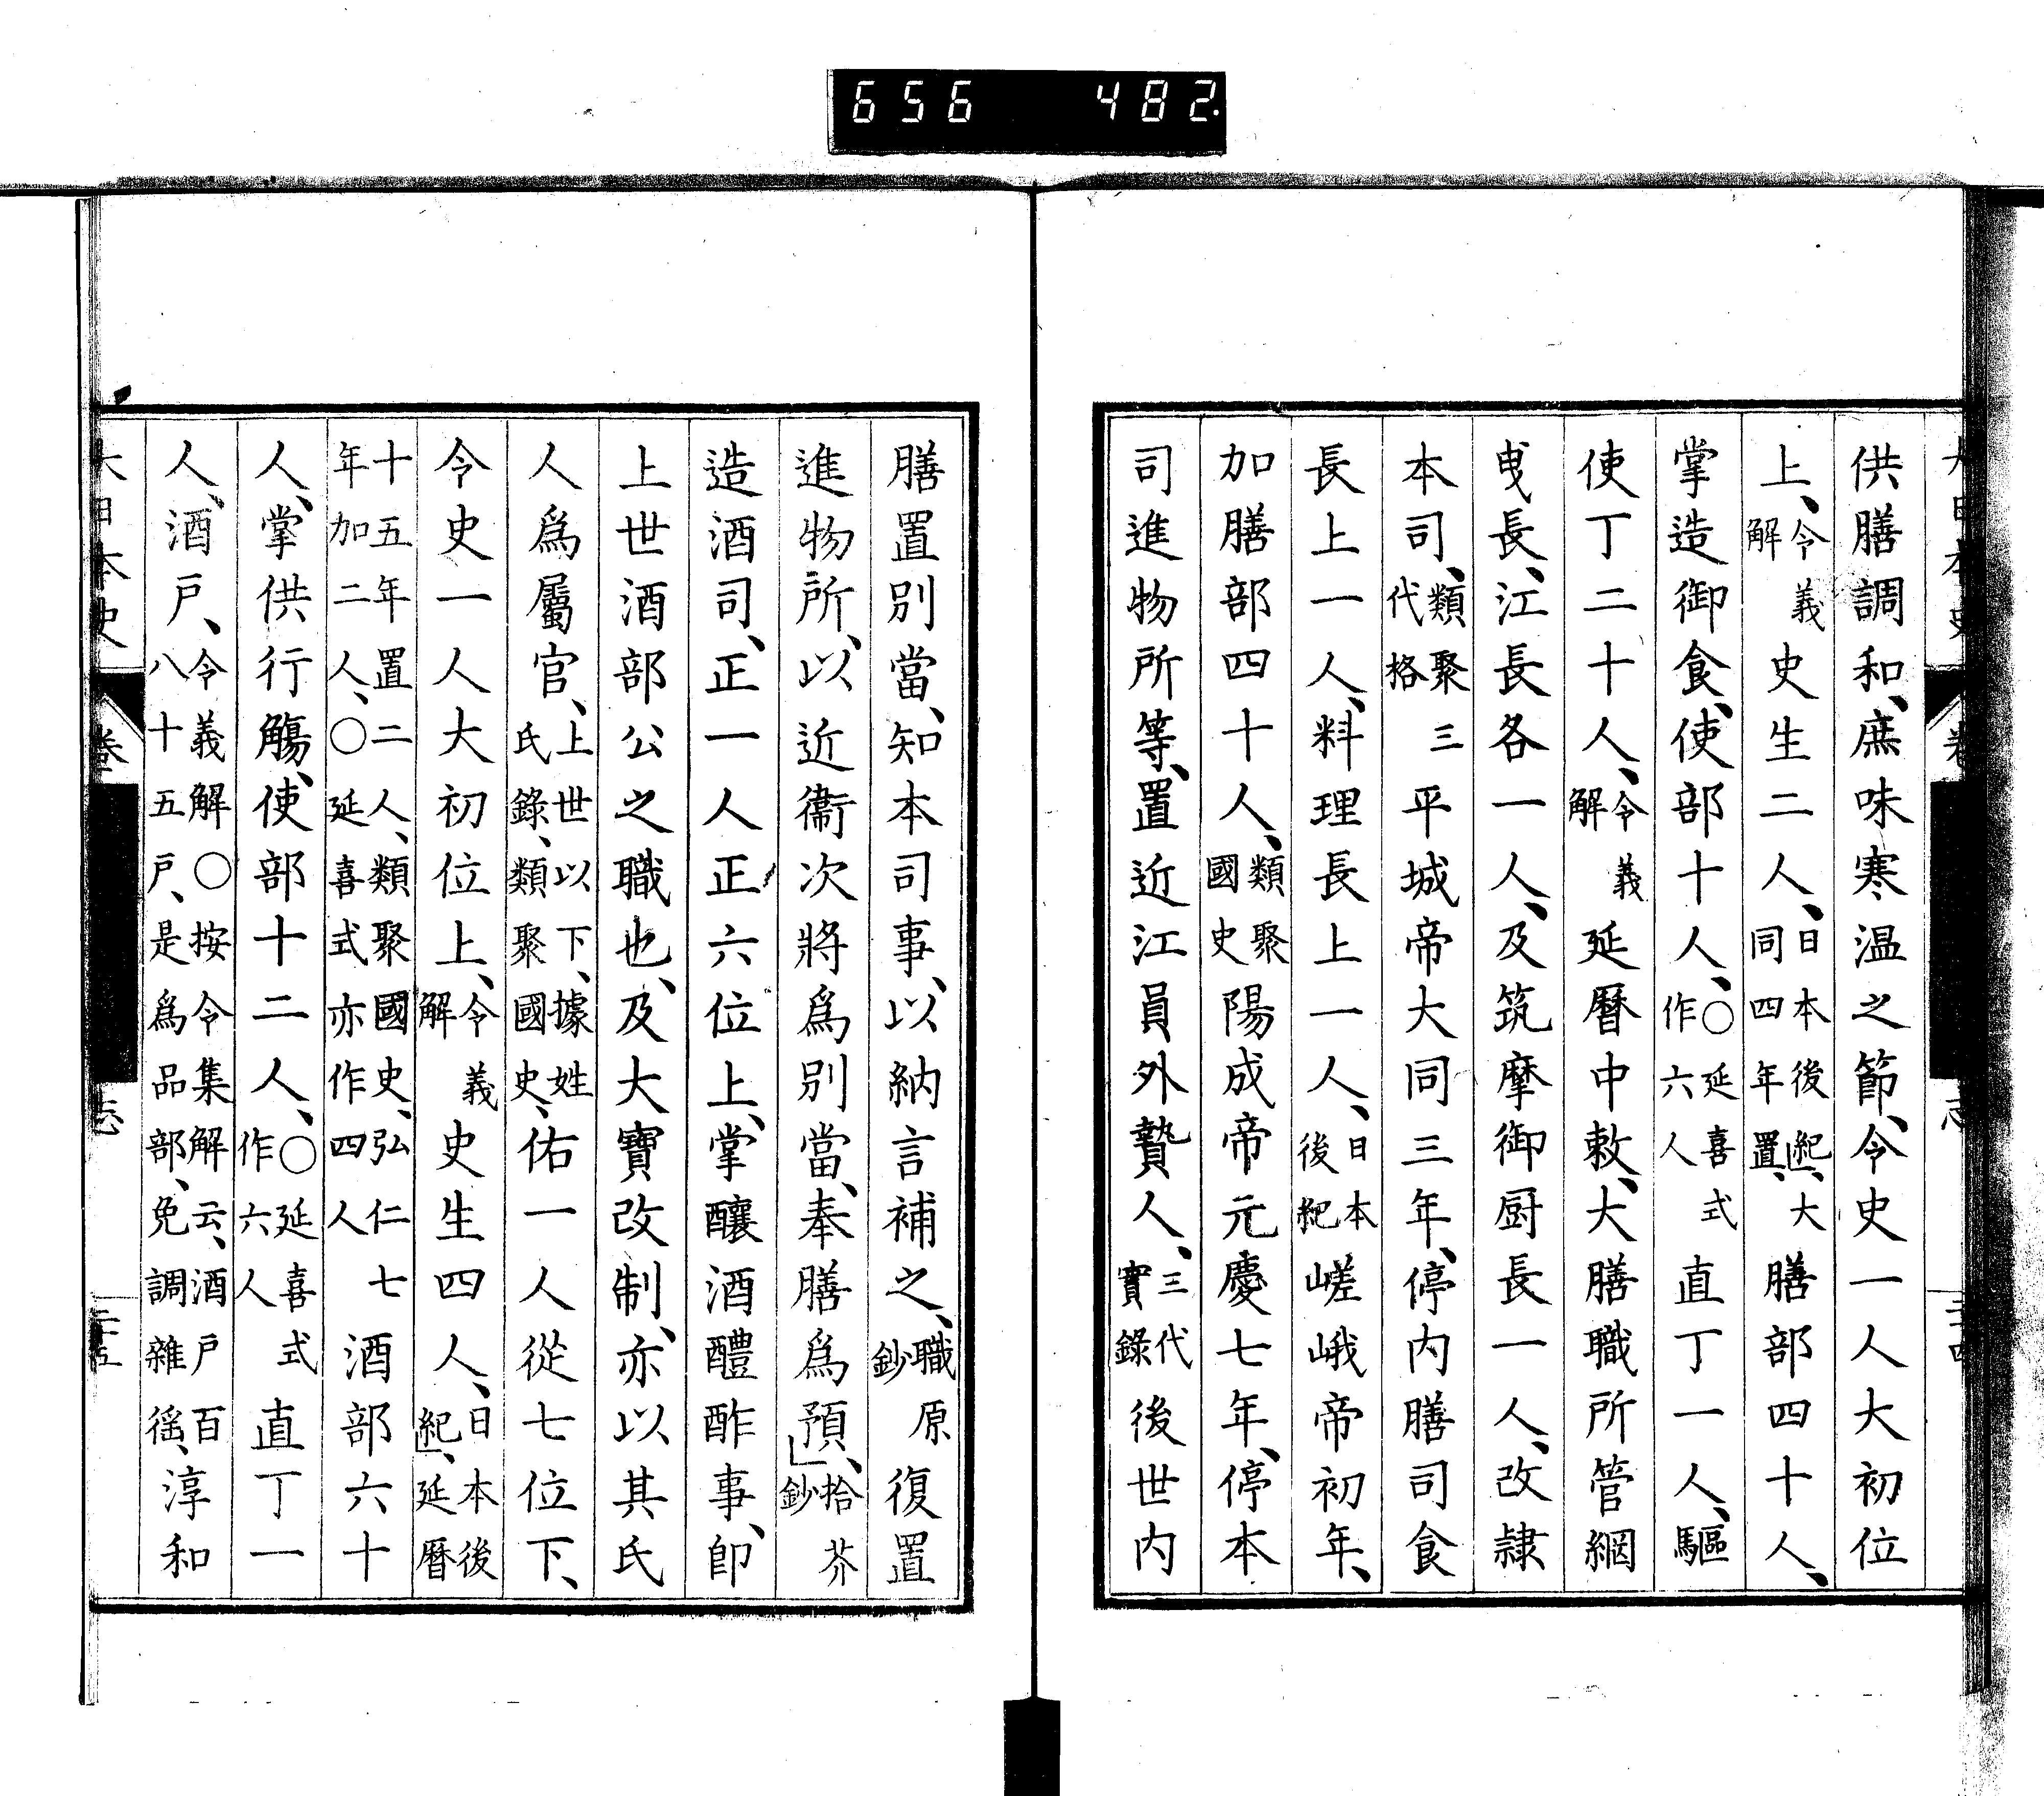 656 482.
供膳調和、庶味寒温之節、令史一人大初位
上、令義解史生二人、日本後紀、大同四年置、膳部四十人、
掌造御食、使部十人、〇延喜式作六人直丁一人、驅
使丁二十人、令義解延曆中敕、大膳職所管網
曳長、江長各一人、及筑摩御厨長一人、改隷
本司、類聚三代格平城帝大同三年、停内膳司食
長上一人、料理長上一人、日本後紀嵯峨帝初年、
加膳部四十人、類聚國史陽成帝元慶七年、停本
司進物所等、置近江員外贄人、三代實錄後世内
膳置別當、知本司事、以納言補之、職原鈔復置
進物所、以近衞次將爲別當、奉膳爲預、拾芥鈔
造酒司、正一人正六位上、掌釀酒醴酢事、卽
上世酒部公之職也、及大寶改制、亦以其氏
人爲屬官、上世以下、據姓氏錄、類聚國史、佑一人從七位下、
令史一人大初位上、令義解史生四人、日本後紀、延曆
十五年置二人、類聚國史、弘仁七年加二人、〇延喜式亦作四人酒部六十
人、掌供行觴、使部十二人、〇延喜式作六人直丁一
人、酒戸、令義解〇按令集解云、酒戸百八十五戸、是爲品部、免調雜徭、淳和
大日本史 卷 志